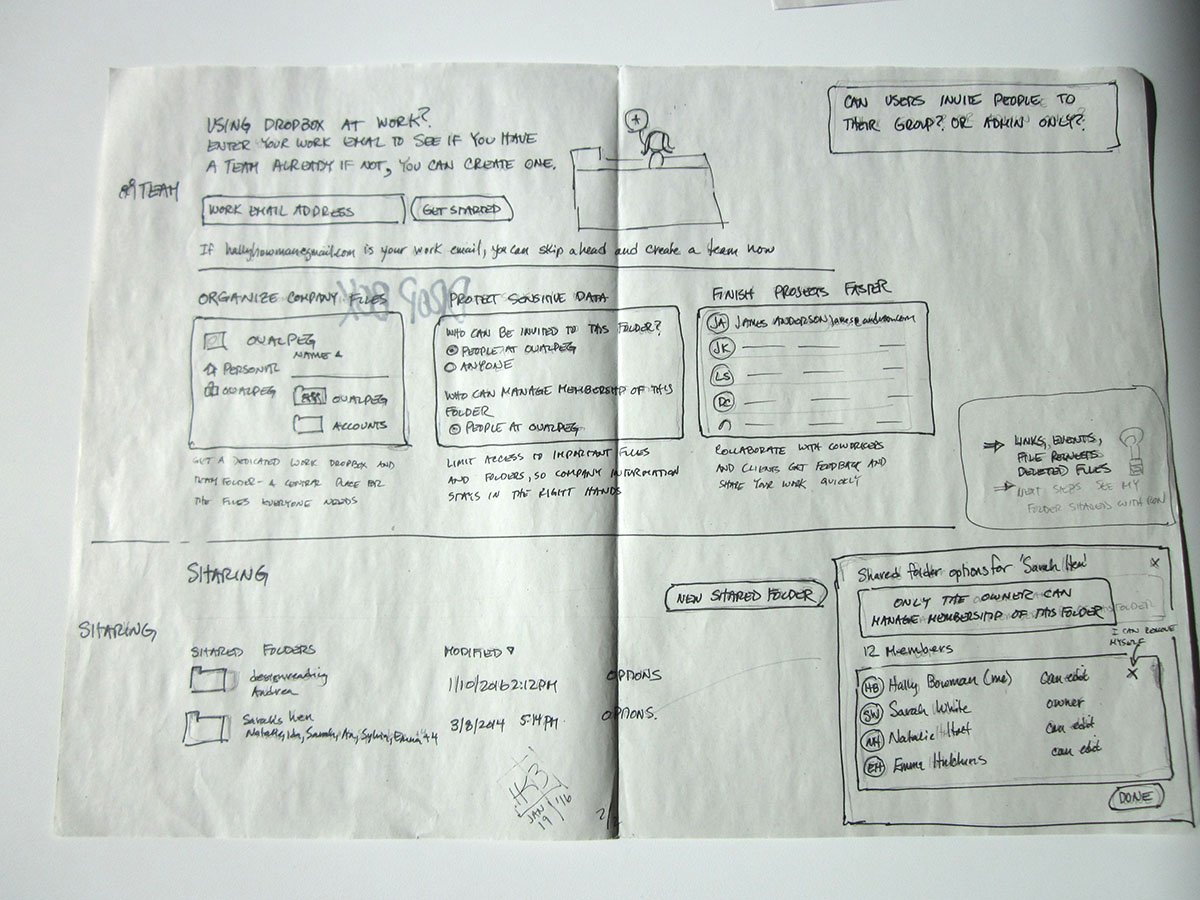 CAN USERS INVITE PEOPLE TO
THEIR GROUP? OR ADMIN ONLY?
USING DROPBOX AT WORK?
ENTER YOUR WORK EMAIL TO SEE IF YOU HAVE
A TEAM ALREADY IF NOT, YOU CAN CREATE ONE.
TEAM
WORK EMAIL ADDRESS
GET STARTED
If hallybowman@gmail.com is your work email, you can skip ahead and create a team now
DROPBOX
ORGANIZE COMPANY FILES
OVALPEG
NAME
PERSONAL
OVALPEG
OVALPEG
ACCOUNTS
GET A DEDICATED WORK DROPBOX AND
TEAM FOLDER - A CENTRAL PLACE FOR
THE FILES EVERYONE NEEDS
PROTECT SENSITIVE DATA
WHO CAN BE INVITED TO THIS FOLDER?
PEOPLE AT OVALPEG
ANYONE
WHO CAN MANAGE MEMBERSHIP OF THIS
FOLDER
PEOPLE AT OVALPEG
LIMIT ACCESS TO IMPORTANT FILES
AND FOLDERS, SO COMPANY INFORMATION
STAYS IN THE RIGHT HANDS
FINISH PROJECTS FASTER
JA JAMES ANDERSON
JK
LS
DC
COLLABORATE WITH COWORKERS
AND CLIENTS GET FEEDBACK AND
SHARE YOUR WORK QUICKLY
LINKS, EVENTS,
FILE REQUESTS
DELETED FILES
NEXT STEPS SEE MY
FOLDER SHARED WITH RON
SHARING
SHARING
NEW SHARED FOLDER
SHARED FOLDERS
MODIFIED
designreading
Andrea
1/10/2016 2:12PM
OPTIONS
Sarah's Hen
Natalie, Ida, Sarah, An, Sylvia, Emma +4
3/8/2014 5:14 PM
OPTIONS.
Shared folder options for 'Sarah Hen'
X
ONLY THE OWNER CAN
MANAGE MEMBERSHIP OF THIS FOLDER
12 Members
I CAN REMOVE
MYSELF
HB Hally Bowman (me) Can edit X
SW Sarah White owner
NH Natalie can edit
EH Emma Hutchins can edit
DONE
JAN
19 '16
2/